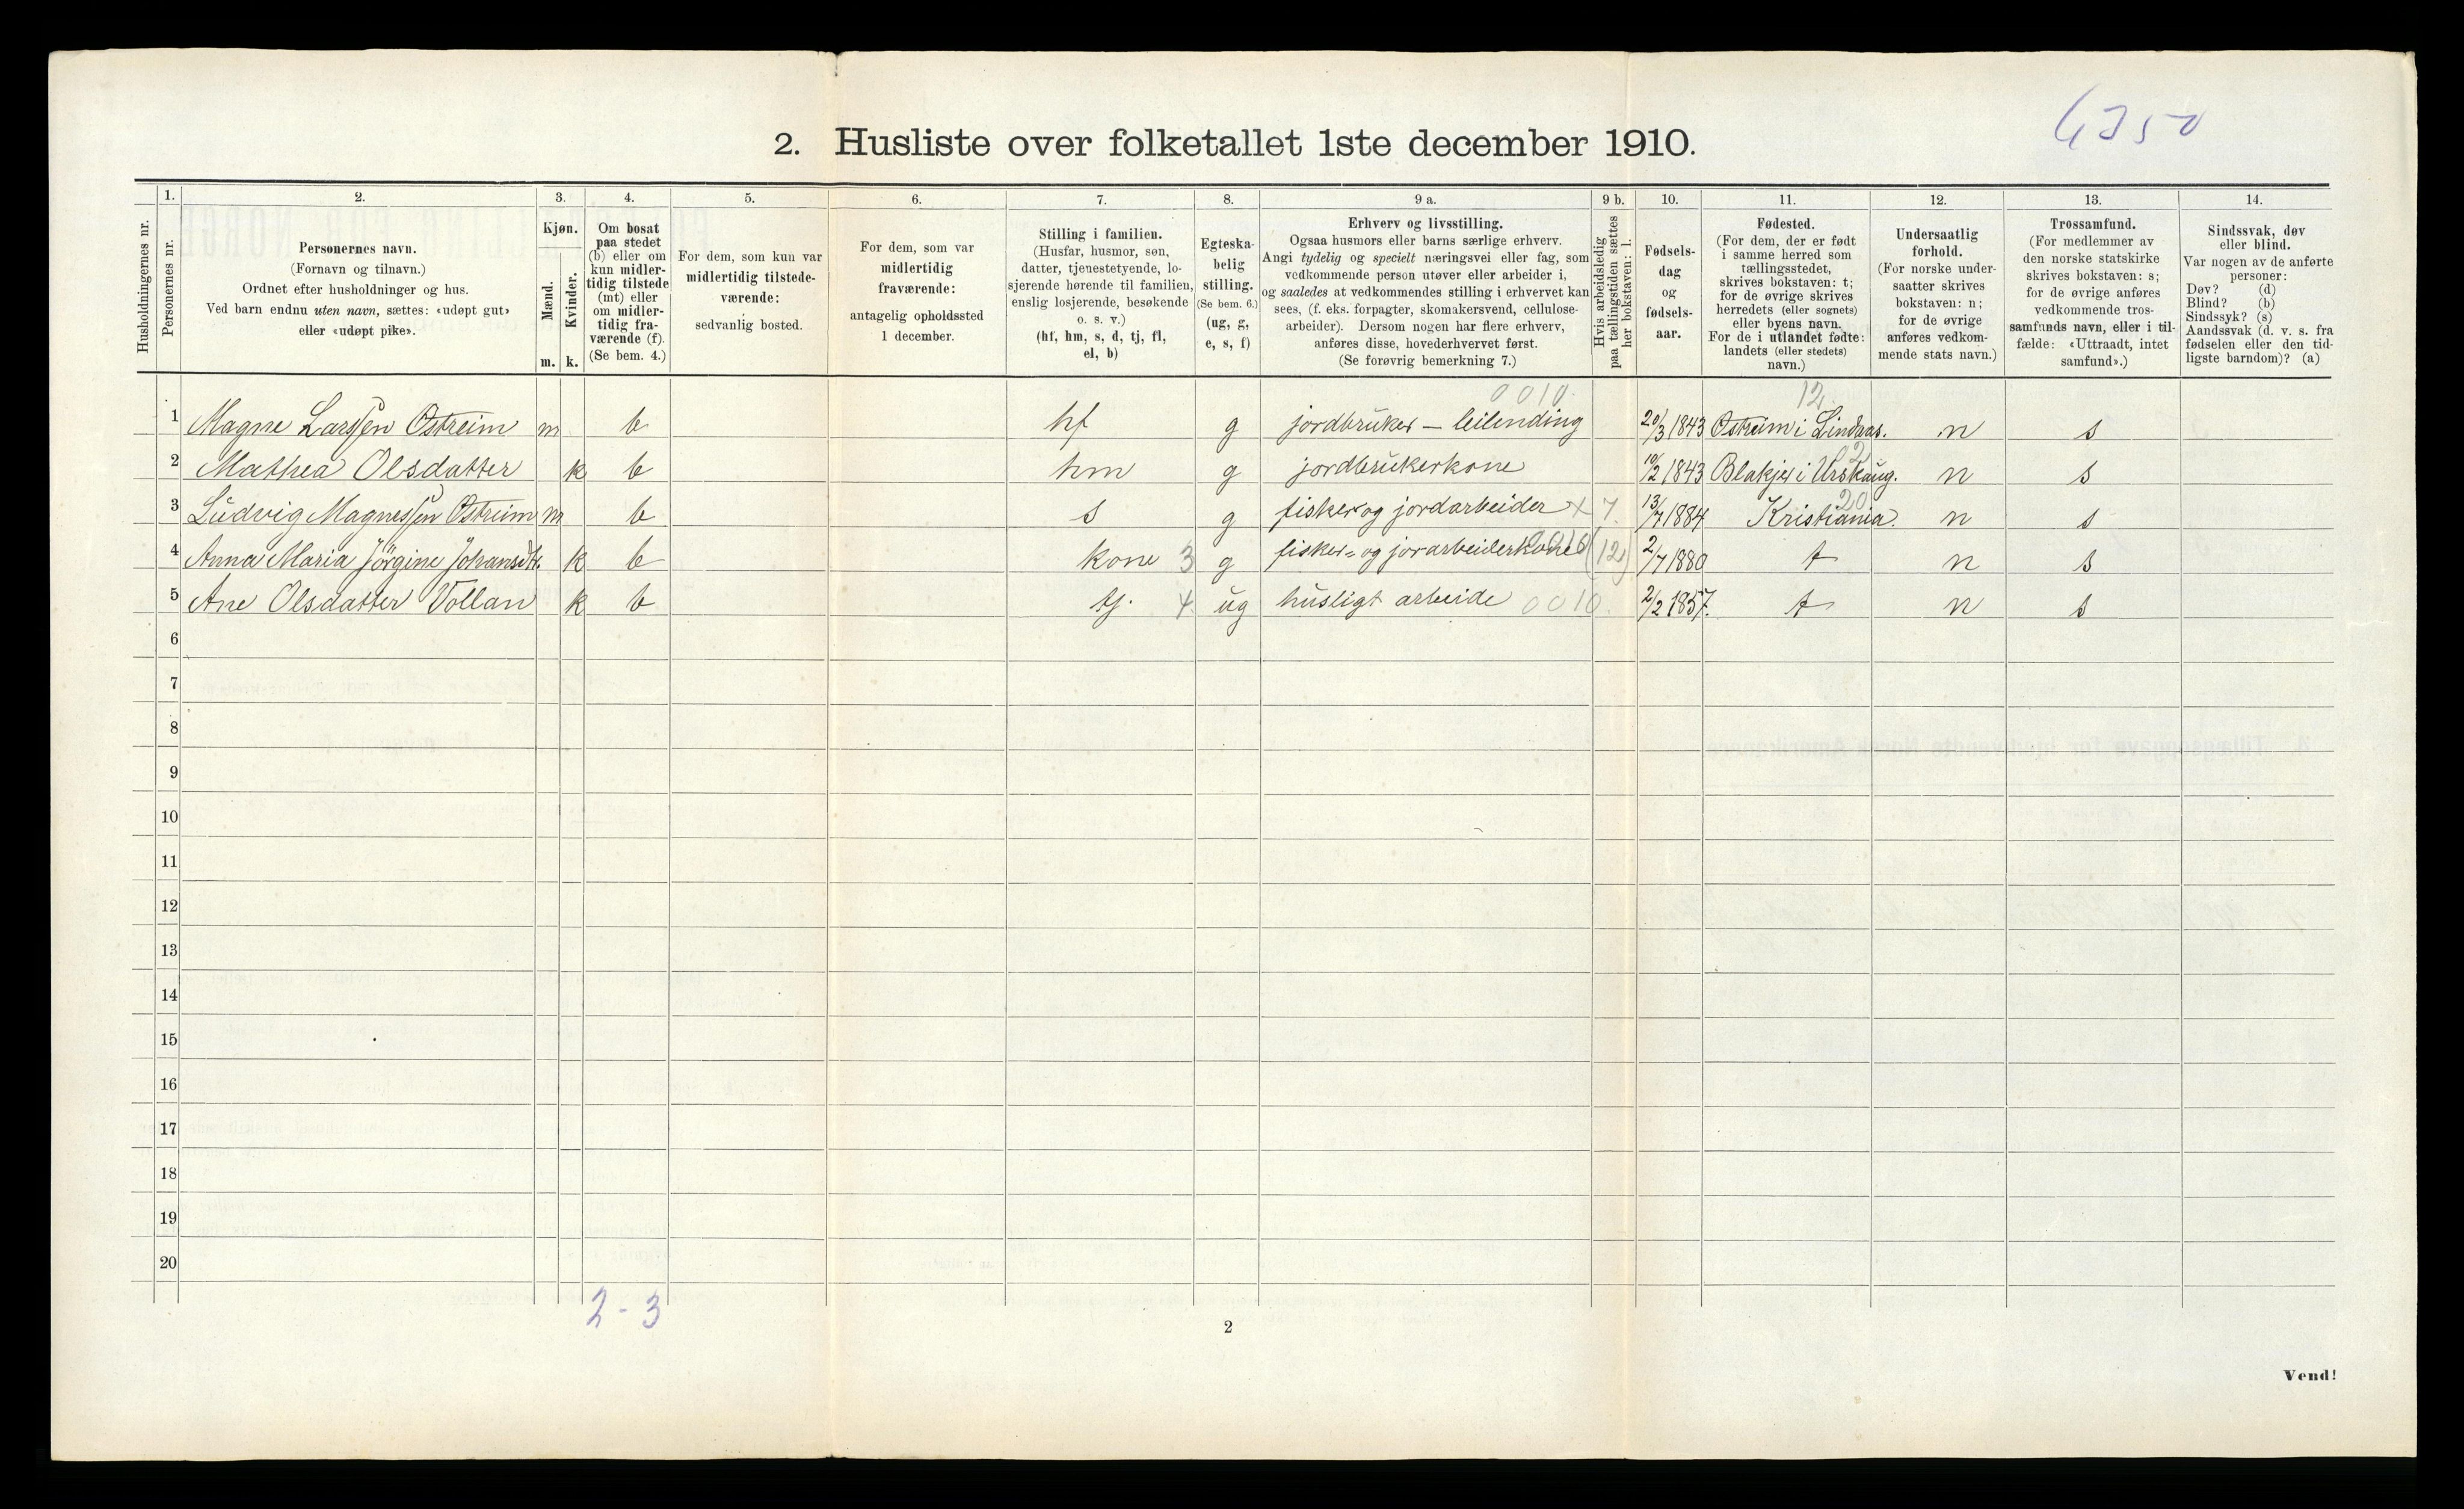 6350
2. Husliste over folketallet 1ste december 1910.
Husholdningernes nr.
1.
Personernes nr.
2.
Personernes navn.
(Fornavn og tilnavn.)
Ordnet efter husholdninger og hus.
Ved barn endnu uten navn, sættes: «udøpt gut»
eller «udøpt pike».
3.
Kjøn.
Mænd.
m.
Kvinder.
k.
4.
Om bosat
paa stedet
(b) eller om
kun midler-
tidig tilstede
(mt) eller
om midler-
tidig fra-
værende (f).
(Se bem. 4.)
5.
For dem, som kun var
midlertidig tilstede-
værende:
sedvanlig bosted.
6.
For dem, som var
midlertidig
fraværende:
antagelig opholdssted
1 december.
7.
Stilling i familien.
(Husfar, husmor, søn,
datter, tjenestetyende, lo-
sjerende hørende til familien,
enslig losjerende, besøkende
o. s. v.)
(hf, hm, s, d, tj, fl,
el, b)
8.
Egteska-
belig
stilling.
(Se bem. 6.)
(ug, g,
e, s, f)
9 a.
Erhverv og livsstilling.
Ogsaa husmors eller barns særlige erhverv.
Angi tydelig og specielt næringsvei eller fag, som
vedkommende person utøver eller arbeider i,
og saaledes at vedkommendes stilling i erhvervet kan
sees, (f. eks. forpagter, skomakersvend, cellulose-
arbeider). Dersom nogen har flere erhverv,
anføres disse, hovederhvervet først.
(Se forøvrig bemerkning 7.)
9 b.
Hvis arbeidsledig
paa tællingstiden sættes
her bokstaven: l.
10.
Fødsels-
dag
og
fødsels-
aar.
11.
Fødested.
(For dem, der er født
i samme herred som
tællingsstedet,
skrives bokstaven: t;
for de øvrige skrives
herredets (eller sognets)
eller byens navn.
For de i utlandet fødte:
landets (eller stedets)
navn.)
12.
Undersaatlig
forhold.
(For norske under-
saatter skrives
bokstaven: n;
for de øvrige
anføres vedkom-
mende stats navn.)
13.
Trossamfund.
(For medlemmer av
den norske statskirke
skrives bokstaven: s;
for de øvrige anføres
vedkommende tros-
samfunds navn, eller i til-
fælde: «Uttraadt, intet
samfund».)
14.
Sindssvak, døv
eller blind.
Var nogen av de anførte
personer:
Døv? (d)
Blind? (b)
Sindssyk? (s)
Aandssvak (d. v. s. fra
fødselen eller den tid-
ligste barndom)? (a)
0010. 12.
1 Magne Larssen Østreim m b hf g jordbruker – leilending 20/3 1843 Østreim i Lindaas. n s
2 Mathea Olsdatter k b hm g jordbrukerkone 10/2 1843 Blakjer i Urskaug. n s
20
3 Ludvig Magnessen Østreim m b s g fisker og jordarbeider x 7. 13/7 1884 Kristiania. n s
4 Anna Maria Jörgine Johansdtr. k b kone 3 g fisker- og jorarbeiderkone (12) 2/7 1880 t n s
5 Ane Olsdatter Vollan k b tj. 4. ug husligt arbeide 0010. 2/2 1857. t n s
6
7
8
9
10
11
12
13
14
15
16
17
18
19
20
2-3
2
Vend!